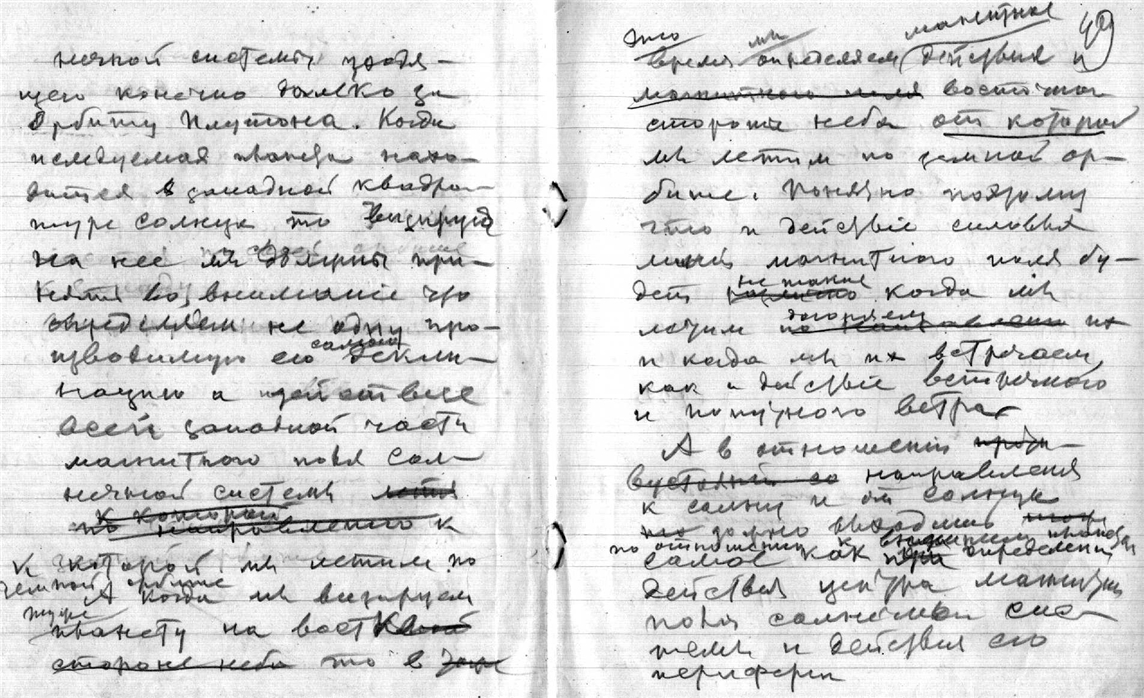 нечной системы уходя-
щего конечно далеко за
орбиту Плутона. Когда
исследуемая планета нахо-
дится в западной квадра-
туре солнца то визируя
на нее мы должны при-
нять во внимание что
определяем не одну про-
изводимую его самого декли-
нацию а действие
всей западной части
магнитного поля сол-
нечной системы
по направлению к
к которой
к которой мы летим по
земной орбите А когда мы визируем
планету на вост
стороне неба то в
49
это мы магнитное
время определяем действия и
магнитного поля восточной
стороны неба от которой
мы летим по земной ор-
бите. Понятно поэтому
что и действие силовых
линий магнитного поля бу-
дет не такие когда мы
летим догоняем их
и когда мы их встречаем,
как и действие встречного
и попутного ветра
А в отношении
направления
к солнцу и от солнца
должно выходить
по отношению к внешним планетам
самое как при определении
действия центра магнитн
поля солнечной сис-
темы и действия его
периферии